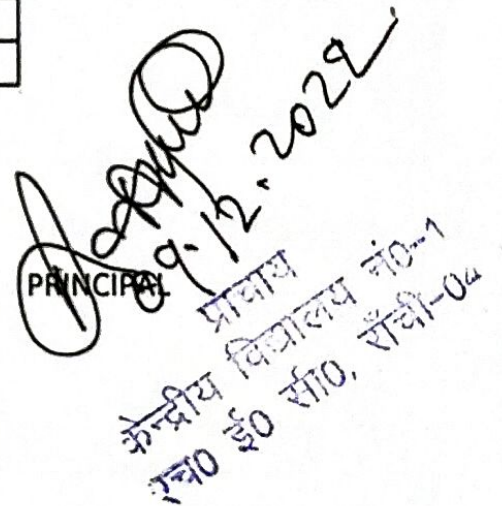 09.12.2022
PRINCIPAL
प्राचार्य
केन्द्रीय विद्यालय नं०-1
एच० ई० सी०, राँची-04